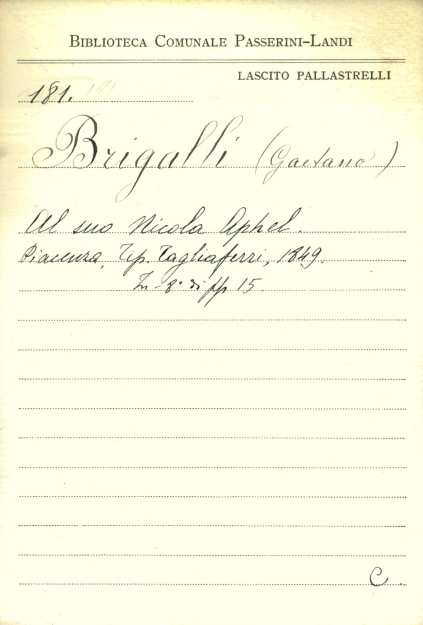 BIBLIOTECA COMUNALE PASSERINI-LANDI
LASCITO PALLASTRELLI
181.
Brigalli (Gaetano)
Al suo Nicola Aphel.
Piacenza, Tip. Tagliaferri, 1849.
In-8° di pp 15.
C.